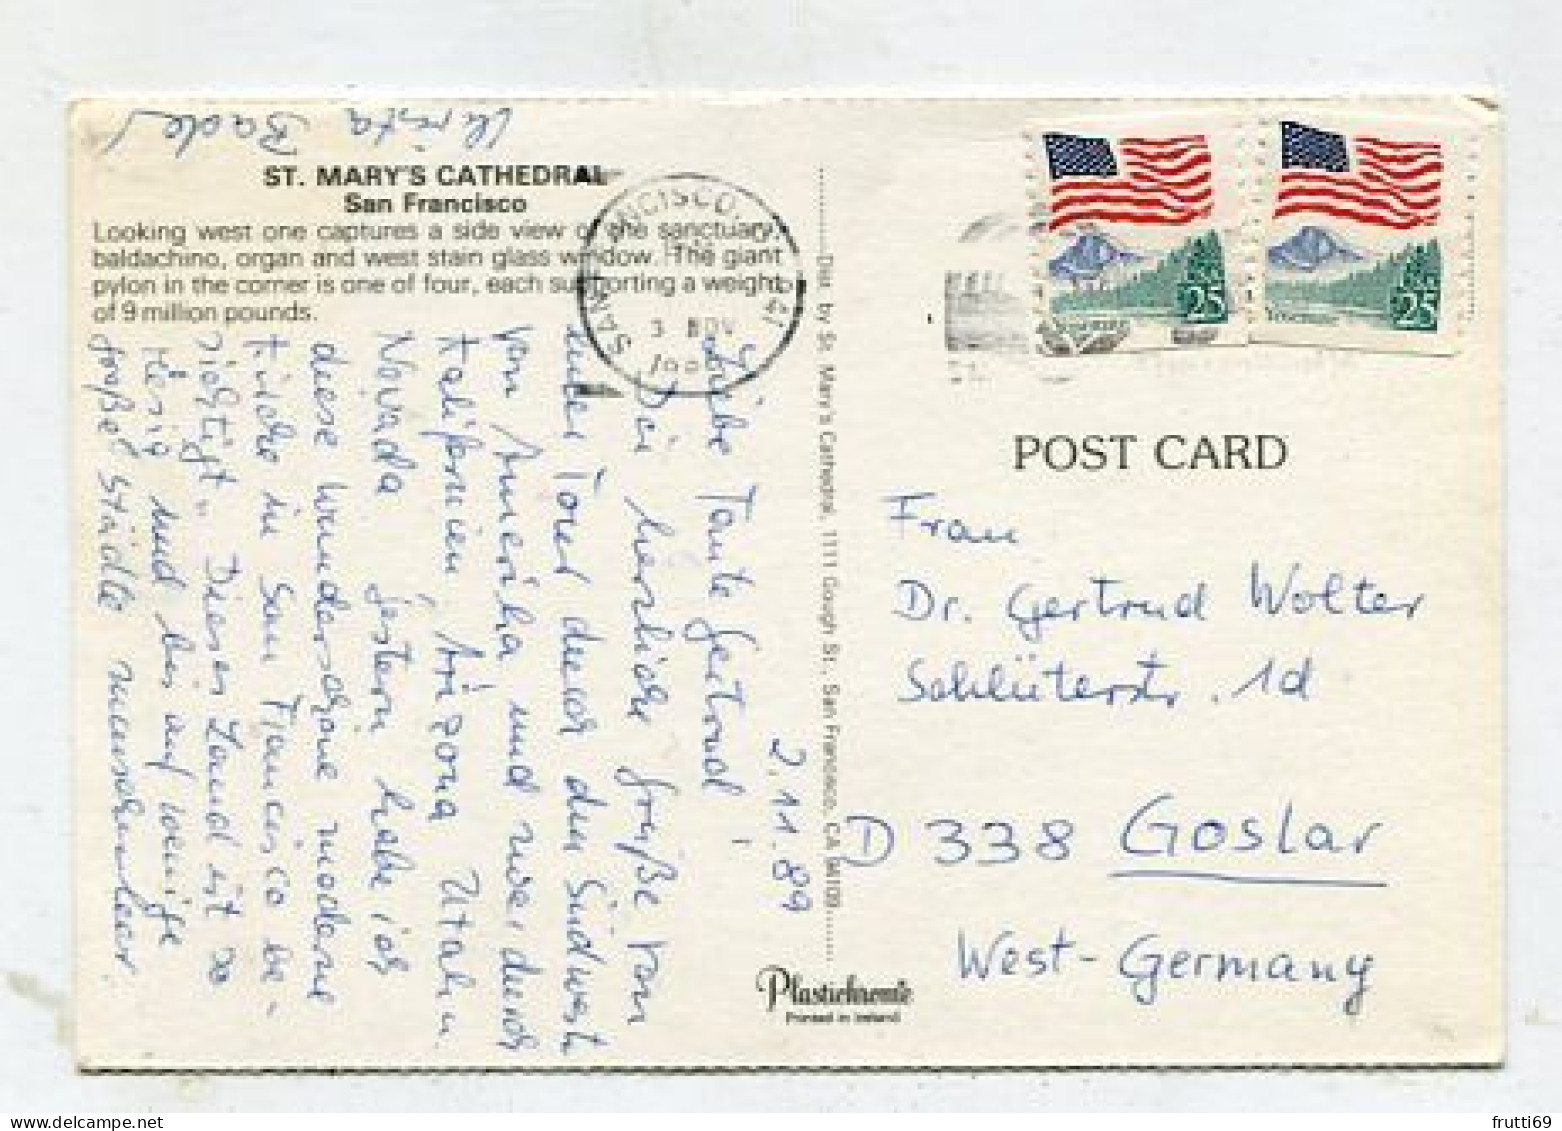 ST. MARY'S CATHEDRAL
San Francisco
Looking west one captures a side view of the sanctuary,
baldachino, organ and west stain glass window. The giant
pylon in the corner is one of four, each supporting a weight
of 9 million pounds.
2.11.89
Liebe Tante Gertrud!
Dir herzliche Grüße von
einer Tour durch den Südwesten
von Amerika und zwar durch
Kalifornien, Arizona Utah u.
Nevada. Gestern habe ich
diese wunderschöne moderne
Kirche in San Francisco be-
sichtigt. Dieses Land ist so
riesig und bis auf wenige
große Städte menschenleer.
Christa Bade
Dist. by St. Mary's Cathedral, 1111 Gough St., San Francisco, CA 94109
Plastichrome
Printed in Ireland
SAN FRANCISCO, 941
3 NOV
25
Yosemite
25
Yosemite
POST CARD
Frau
Dr. Gertrud Wolter
Schlüterstr. 1d
D 338 Goslar
West-Germany
frutti69